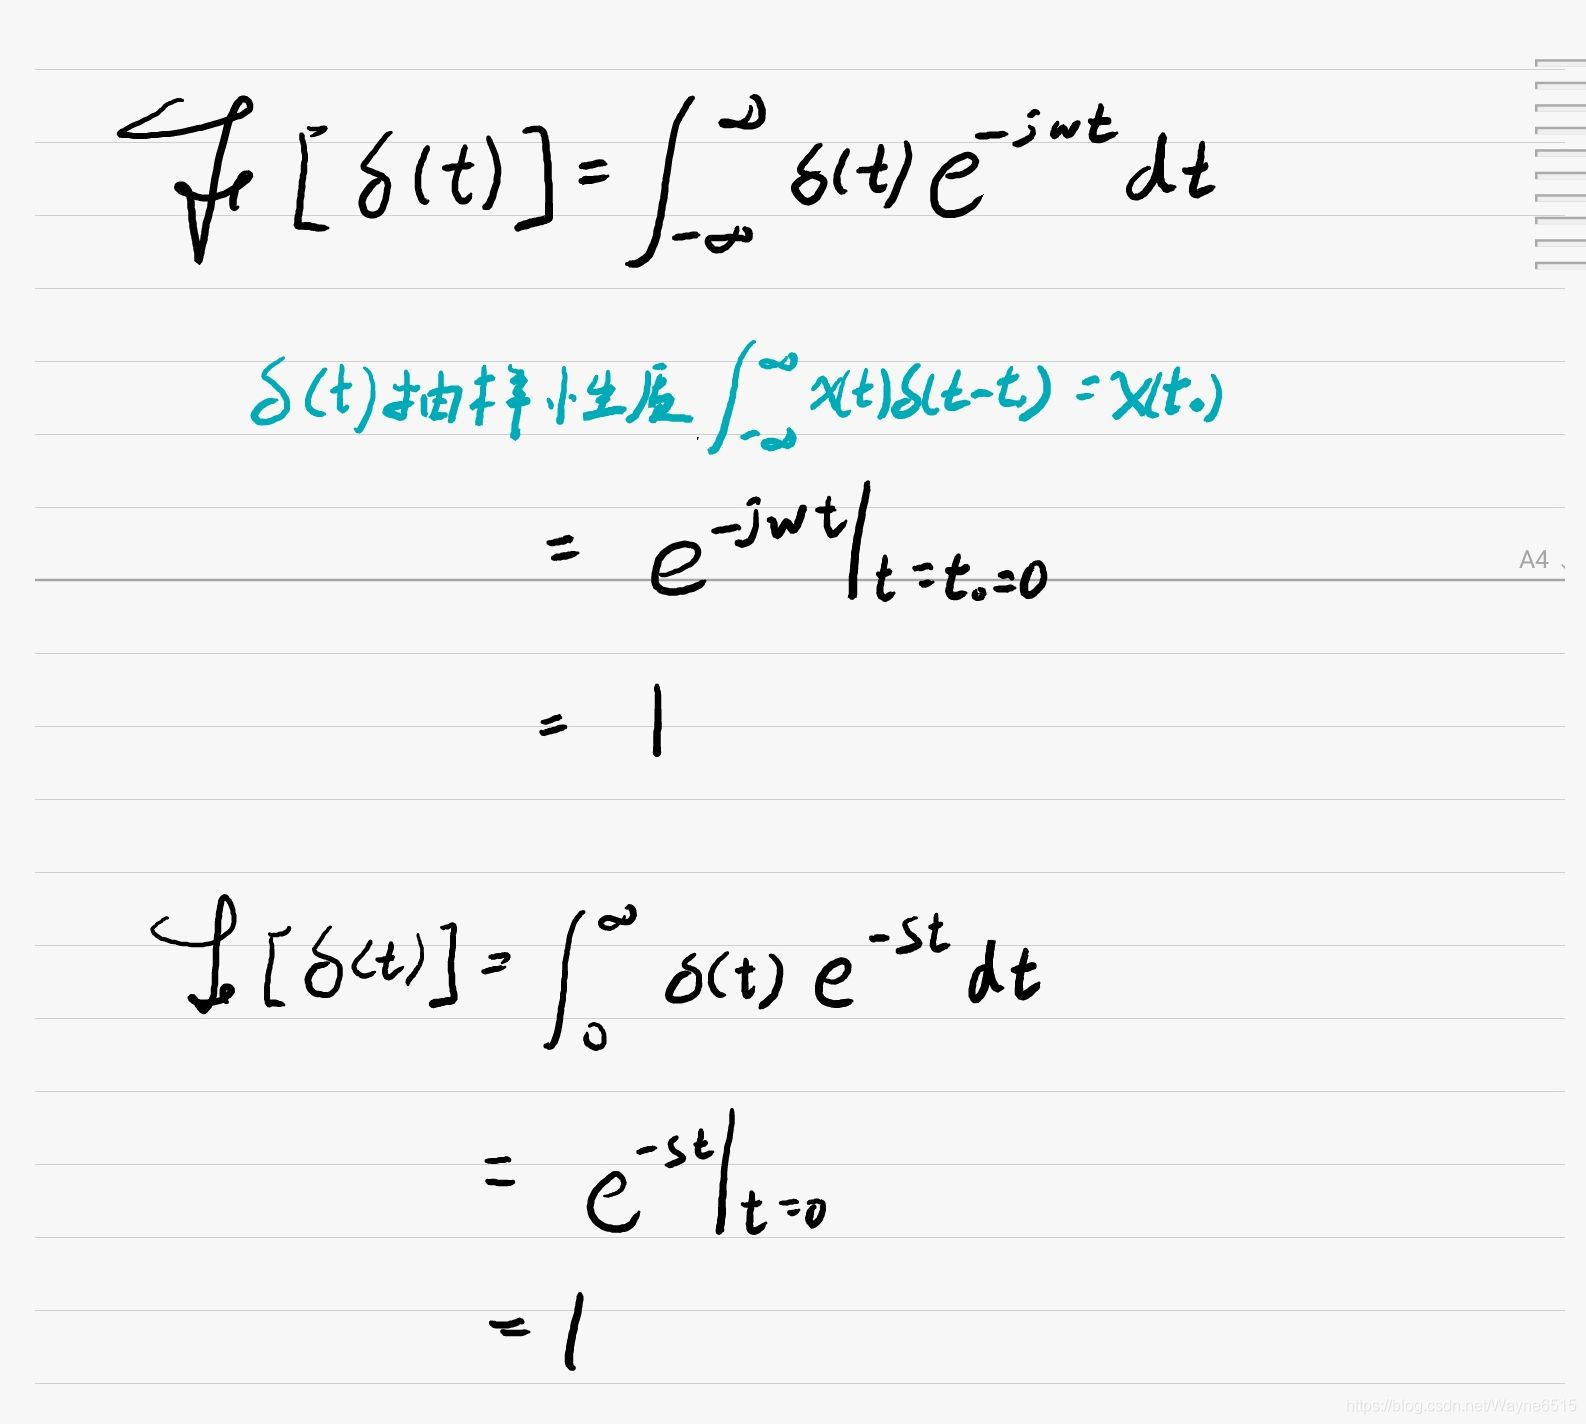 ℱ[δ(t)] = ∫_{-∞}^{∞} δ(t) e^{-jwt} dt
δ(t)抽样性质 ∫_{-∞}^{∞} x(t)δ(t-t₀) = x(t₀)
= e^{-jwt}|_{t=t₀=0}
A4
= 1
ℒ[δ(t)] = ∫_{0}^{∞} δ(t) e^{-st} dt
= e^{-st}|_{t=0}
= 1
https://blog.csdn.net/Wayne6515